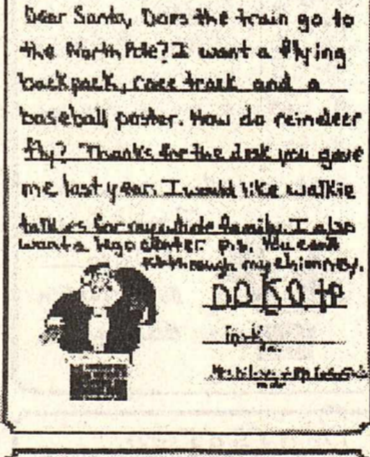 Dear Santa, Does the train go to
the North Pole? I want a flying
backpack, race track and a
baseball poster. How do reindeer
fly? Thanks for the desk you gave
me last year. I would like walkie
talkies for my whole family. I also
want a lego center p.s. You can't
fit through my chimney.